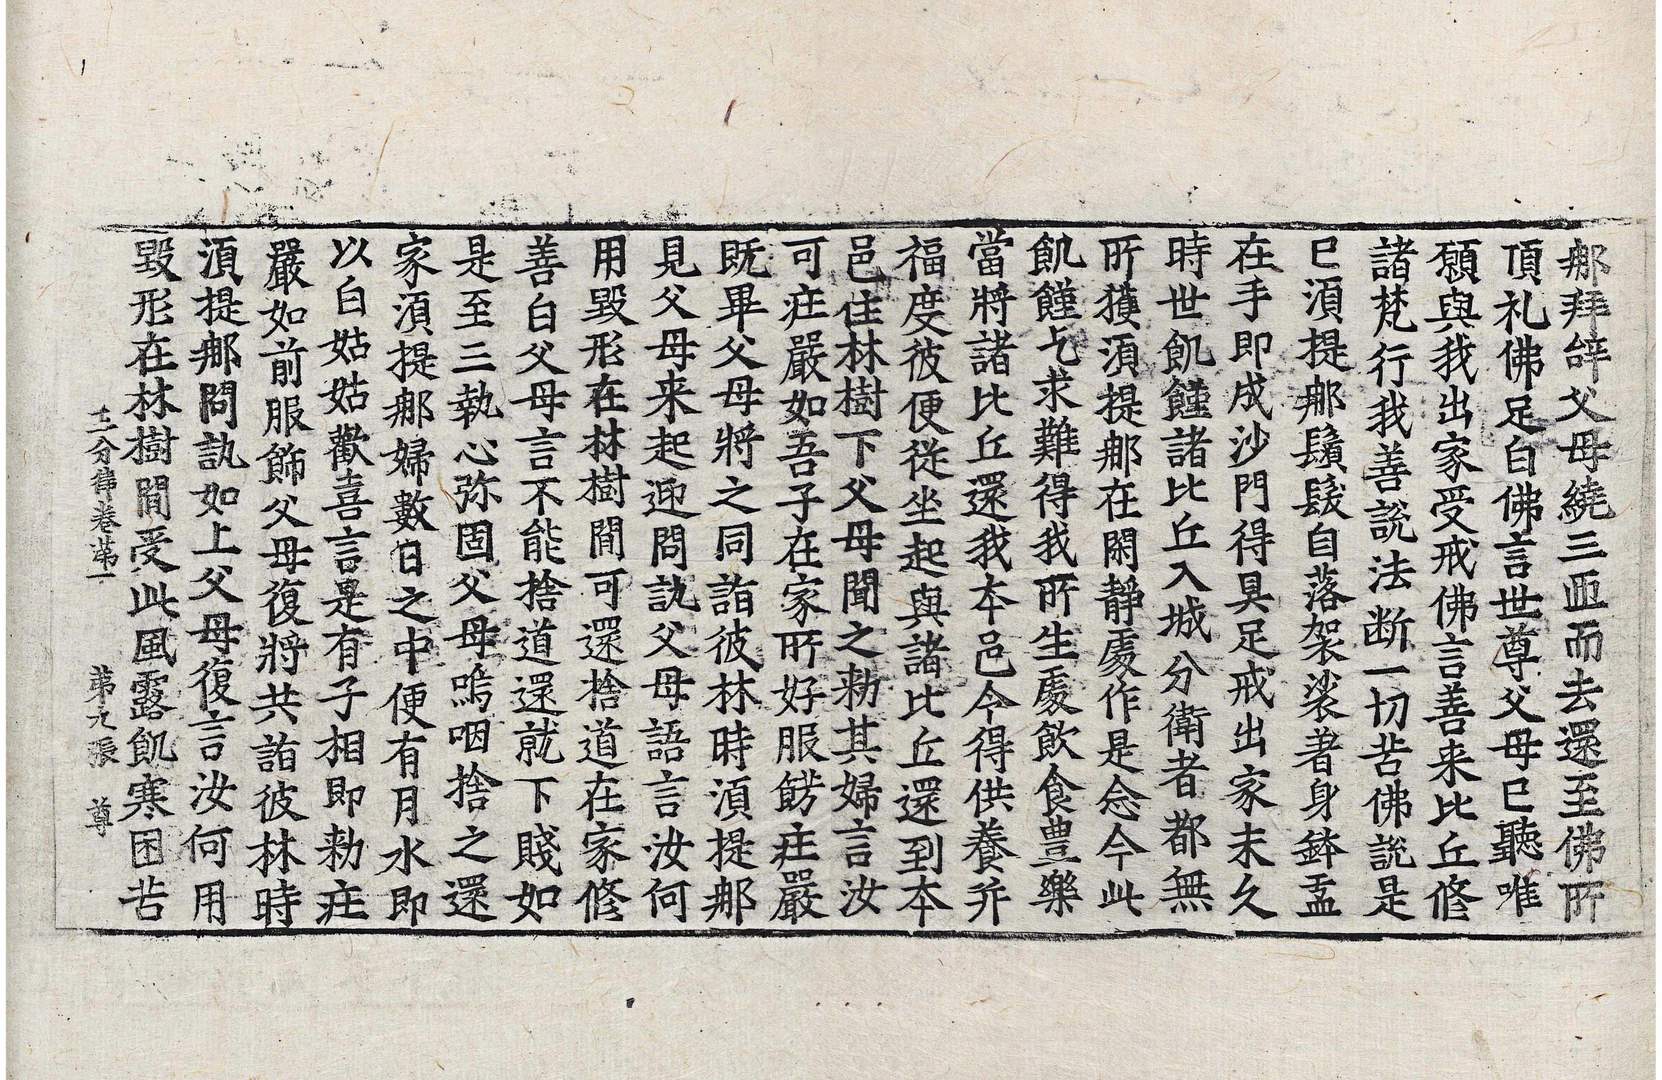 郍拜辝父母繞三匝而去還至佛所
頂礼佛足白佛言世尊父母已聽唯
願與我出家受戒佛言善来比丘修
諸梵行我善說法断一切苦佛說是
已湏提郍鬚髮自落袈裟著身鉢盂
在手即成沙門得具足戒出家未久
時世飢饉諸比丘入城分衛者都無
所獲湏提郍在閑靜處作是念今此
飢饉乞求難得我所生處飲食豊樂
當將諸比丘還我本邑令得供養并
福度彼便從坐起與諸比丘還到本
邑住林樹下父母聞之勑其婦言汝
可庄嚴如吾子在家所好服餝庄嚴
既畢父母將之同詣彼林時湏提郍
見父母来起迎問訊父母語言汝何
用毀形在林樹間可還捨道在家修
善白父母言不能捨道還就下賤如
是至三執心弥固父母嗚咽捨之還
家湏提郍婦數日之中便有月水即
以白姑姑歡喜言是有子相即勑庄
嚴如前服飾父母復將共詣彼林時
湏提郍問訊如上父母復言汝何用
毀形在林樹間受此風露飢寒困苦
五分律卷第一 第九張 尊